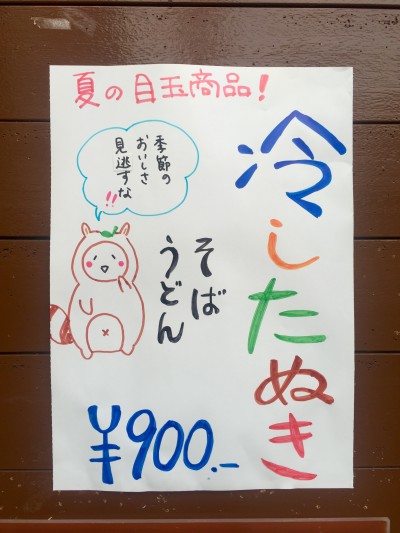 夏の目玉商品！
冷したぬき
季節の
おいしさ
見逃すな
!!
そば
うどん
¥900.-